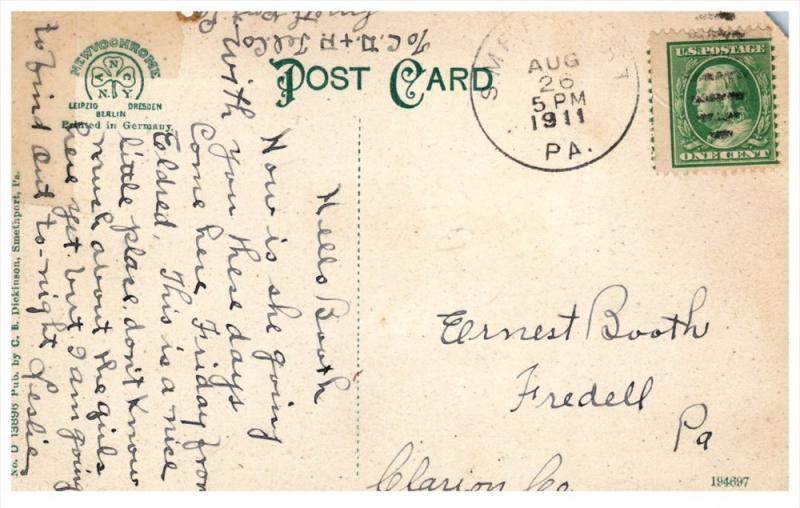 NEWVOCHROME
N.Y.
LEIPZIG DRESDEN
BERLIN
Printed in Germany
POST CARD
AUG
26
5 PM
1911
PA.
U.S. POSTAGE
ONE CENT
Hello Booth
How is she going
with you these days
Come here Friday from
Eldred. This is a nice
little place, don't know
much about the girls
here yet but I am going
to find out to-night Leslie
To C. D. + H Tel. Co
Smethport Pa
Ernest Booth
Fredell
Pa
Clarion Co
No. D 13896 Pub. by C. B. Dickinson, Smethport, Pa.
194697